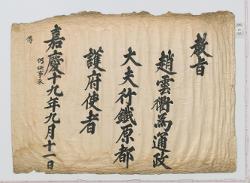 教旨
趙雲衢為通政
大夫行鐵原都
護府使者
嘉慶十九年九月十一日